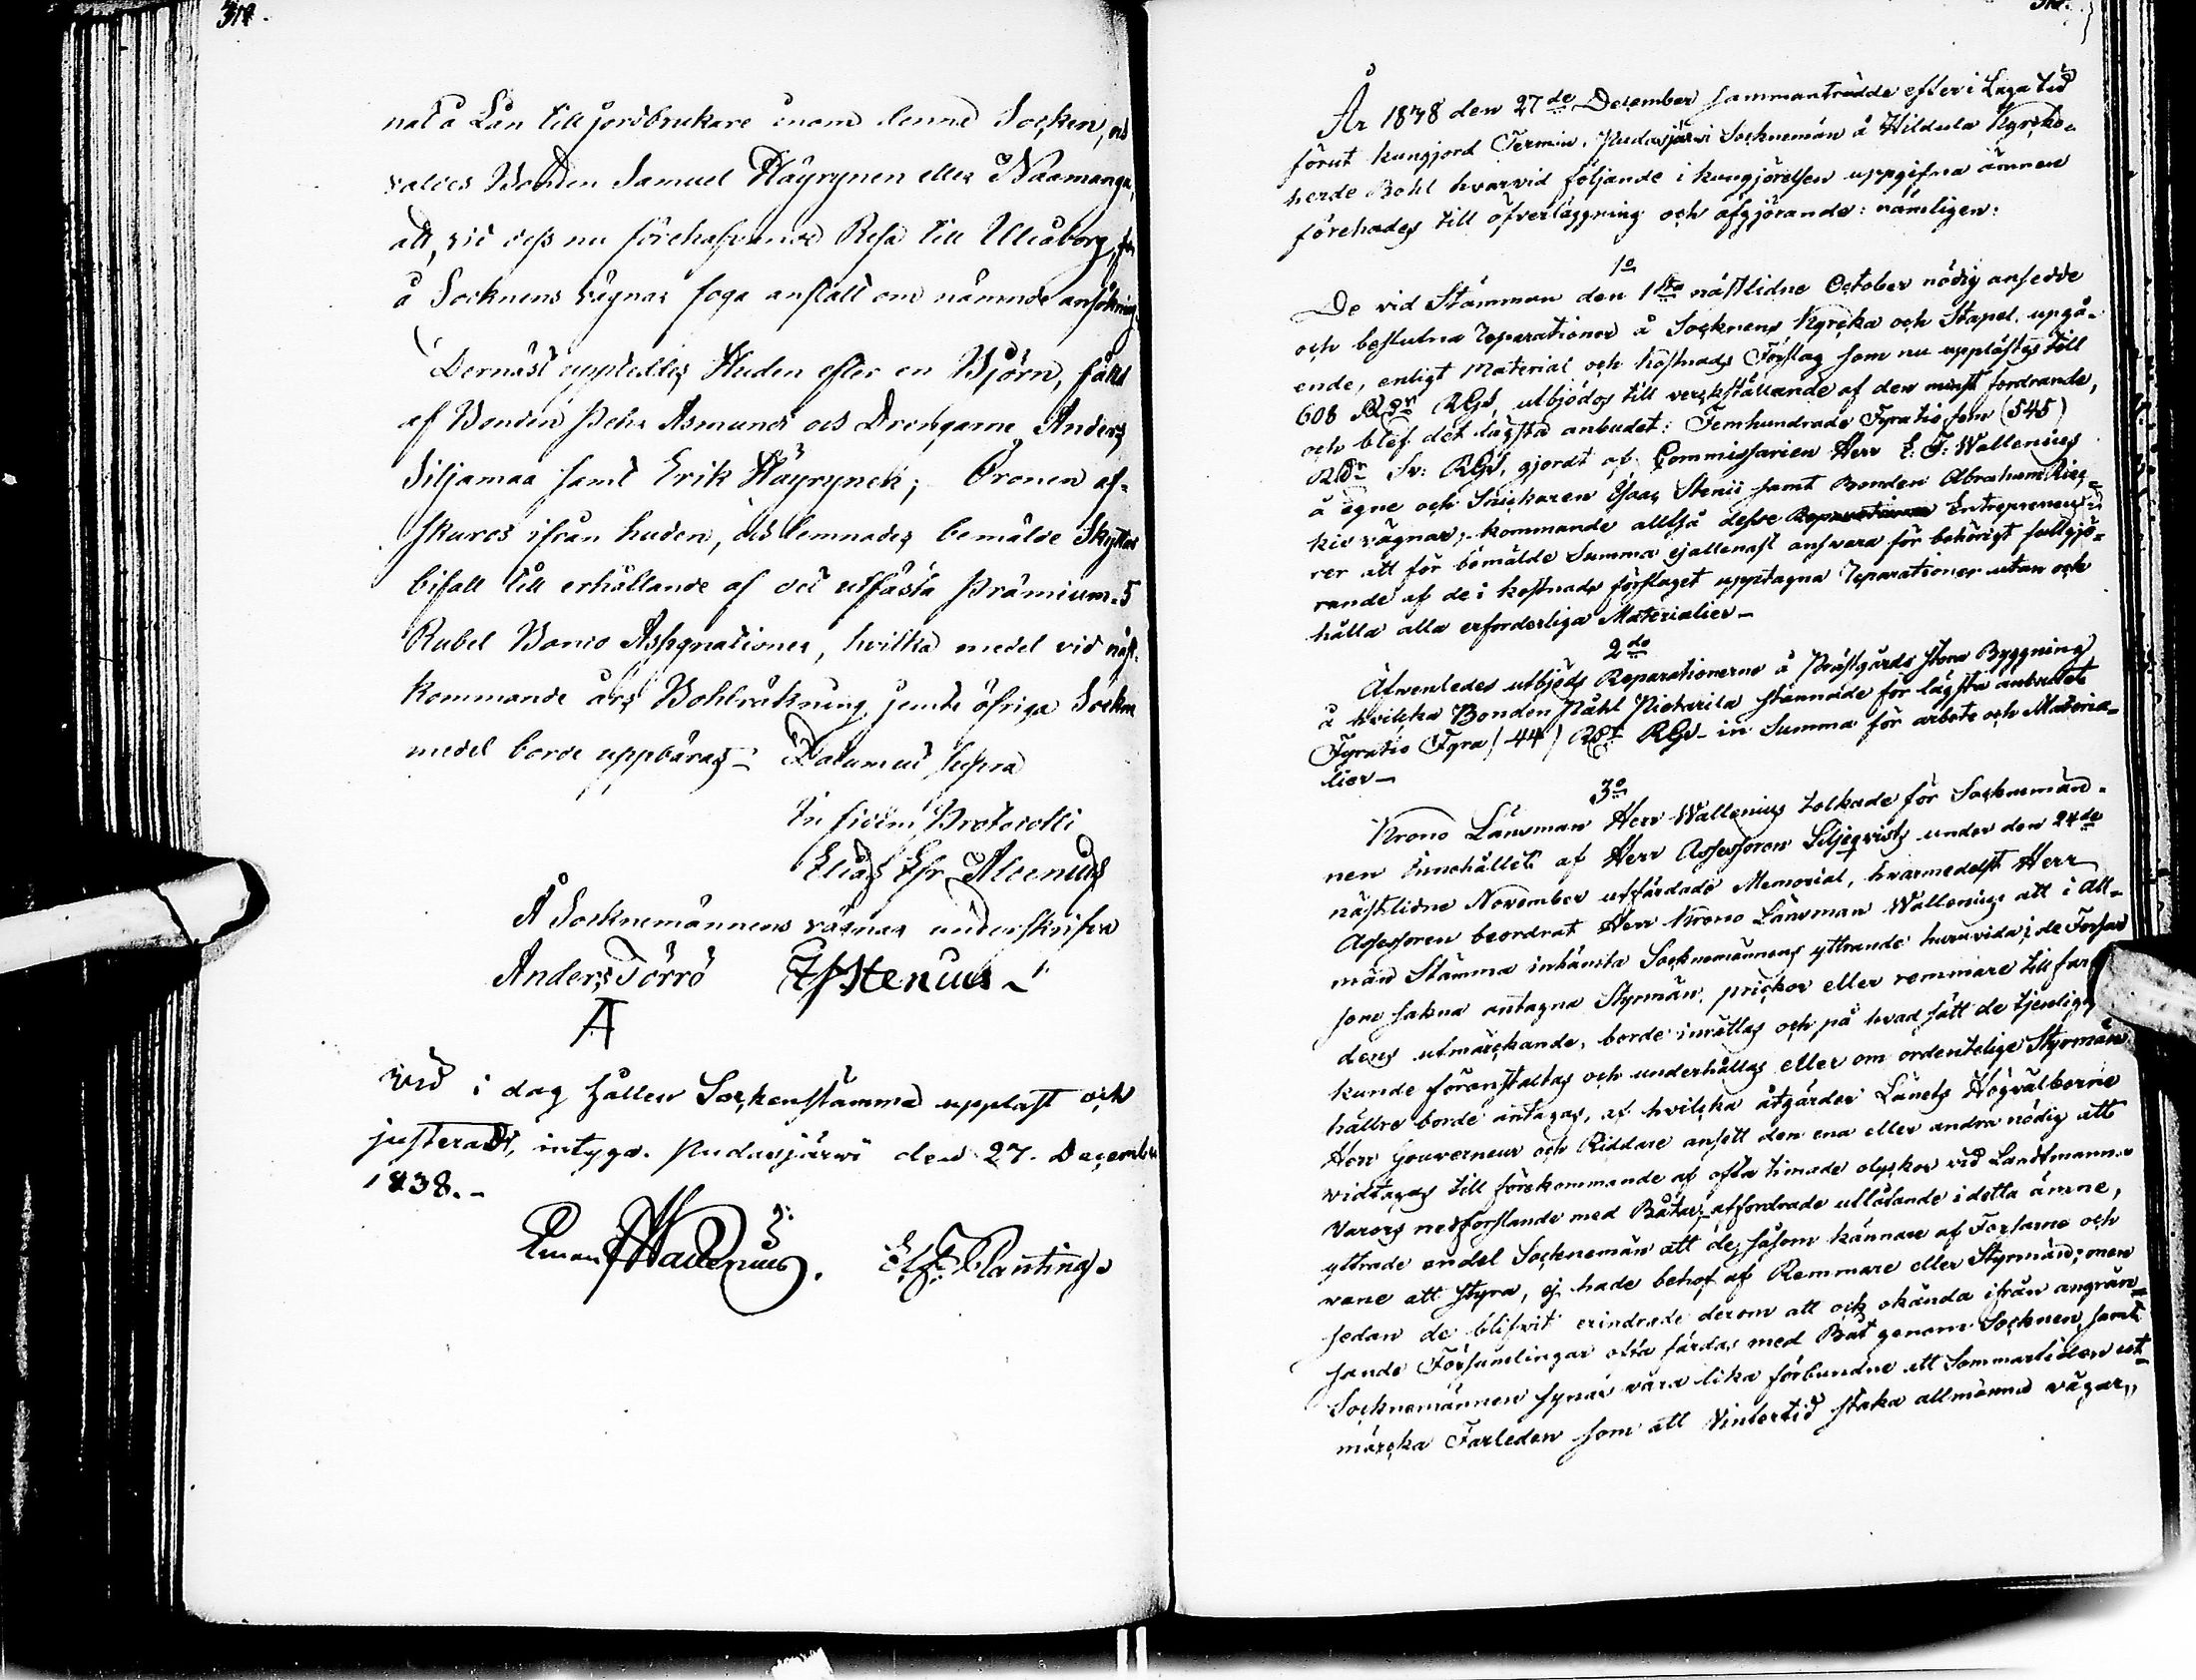 318.
nat å Lån till jordbrukare inom denne Socken,
valdes Bonden Samuel Häyrynen eller Naamanga,
att, vid dess nu förehafvande Resa till Uleåborg,
å Socknens vägnar foga anstalt om nämnde ansökning
Dernäst uppteddes Huden efter en Björn, fälld
af Bonden Pehr Asmund och Drengarne Anders
Siljamaa samt Erik Häyrynen; Öronen af-
skuros ifrån huden, och lemnades bemälde Skyttar
bifall till erhållande af det utfästa Præmium. 5
Rubel Banco Assignationer, hvilka medel vid näst-
kommande års Bohlräkning jemte öfriga Sockne
medel borde uppbäras. Datum ut supra
In fidem Protocolli
Elias Efr. Alcenius
Å Socknemännens vägnar underskrifva
Anders Törrö
Stenius
A
Vid i dag hållen Sockenstämma uppläst och
justeradt, intyga. Pudasjärvi den 27. December
1838.-
Wallenius. Planting.
År 1838 den 27de December sammanträdde efter i Laga tid
förut kungjord Termin, Pudasjärvi Socknemän å Hildula Kyrko-
herde Bohl hvarvid följande i kungjörelsen uppgifna ämnen
förehades till öfverläggning och afgjörande: nämligen:
1o
De vid Stämman den 1sta nästlidne October nödig ansedde
och beslutna reparationer å Socknens Kyrcka och Stapel, upgå-
ende, enligt Material och kostnads Förslag som nu upplästes till
608 Rdr RGs, utbjödos till verckställande af den minst fordrande,
och blef det lägsta anbudet: Femhundrade Fyratiofem (545)
Rdr Sv: RGs, gjordt af Commissarien Herr E. F. Wallenius
å egne och Snickaren Isaac Stenii samt Bonden Abraham Riec-
kis vägnar; kommande alltså desse Reparationer Entrepreneu-
rer att för bemälde Summa ej allenast ansvara för behörigt fullgjö-
rande af de i kostnads förslaget upptagna reparationer utan och
hålla alla erforderliga Materialier -
2do
Äfwenledes utbjöds Reparationerne å Prästgårds stora Byggning
å hvilcka Bonden Påhl Pietarila stannade för lägsta anbudet
Fyratio Fyra (44) Rdr RGs - in Summa för arbete och Materia-
lier -
3o
Krono Länsman Herr Wallenius tolkade för Socknemän-
nen innehållet af Herr Assessoren Liljeqvists under den 24de
nästlidne November utfärdade Memorial, hvarmedelst Herr
Assessoren beordrat Herr Krono Länsman Wallenius att i All-
män Stämma inhämta Socknemännens yttrande huruvida i de Forsar
som sakna antagna Styrmän, prickor eller remmare till far
dens utmärckande, borde inrättas och på hvad sätt de tjenligast
kunde föranstaltas och underhållas eller om ordentelige Styrmän
hällre borde antagas, af hvilcka åtgärder Länets Högvälborne
Herr Gouverneur och Riddare ansett den ena eller andra nödig att
vidtagas till förekommande af ofta timade olyckor vid Landtmanna
varors nedforslande med Båtar; affordrade utlåtande i detta ämne,
yttrade en del Socknemän att de, såsom kännare af Forsarne och
vane att styra, ej hade behof af Remmare eller Styrmän; men
sedan de blifvit erindrade derom att ock okända ifrån angrän-
sande Församlingar ofta färdas med Båt genom Socknen, samt
Socknemännen synas vara lika förbundne att Sommartiden ut-
märcka Farleden som att Vintertid staka allmänna vägar,,